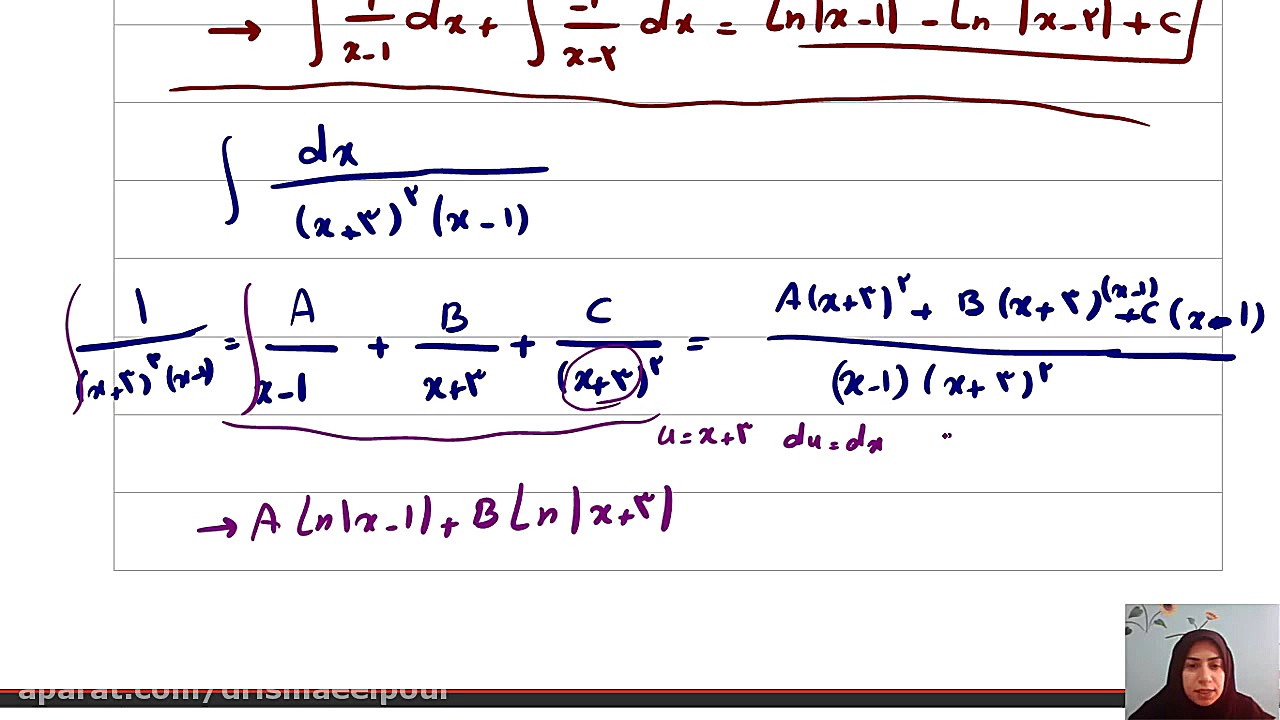 → ∫ 1/(x-1) dx + ∫ -1/(x-۲) dx = Ln|x-1| - Ln |x-۲| + C
∫ dx / ((x+۳)^۲ (x-1))
∫ 1/((x+۳)^۲ (x-1)) = ∫ A/(x-1) + B/(x+۳) + C/(x+۳)^۲ = (A(x+۳)^۲ + B(x+۳)(x-1) + C(x-1)) / ((x-1)(x+۳)^۲)
u=x+۳ du=dx
→ A Ln|x-1| + B Ln|x+۳|
aparat.com/drismaeelpour